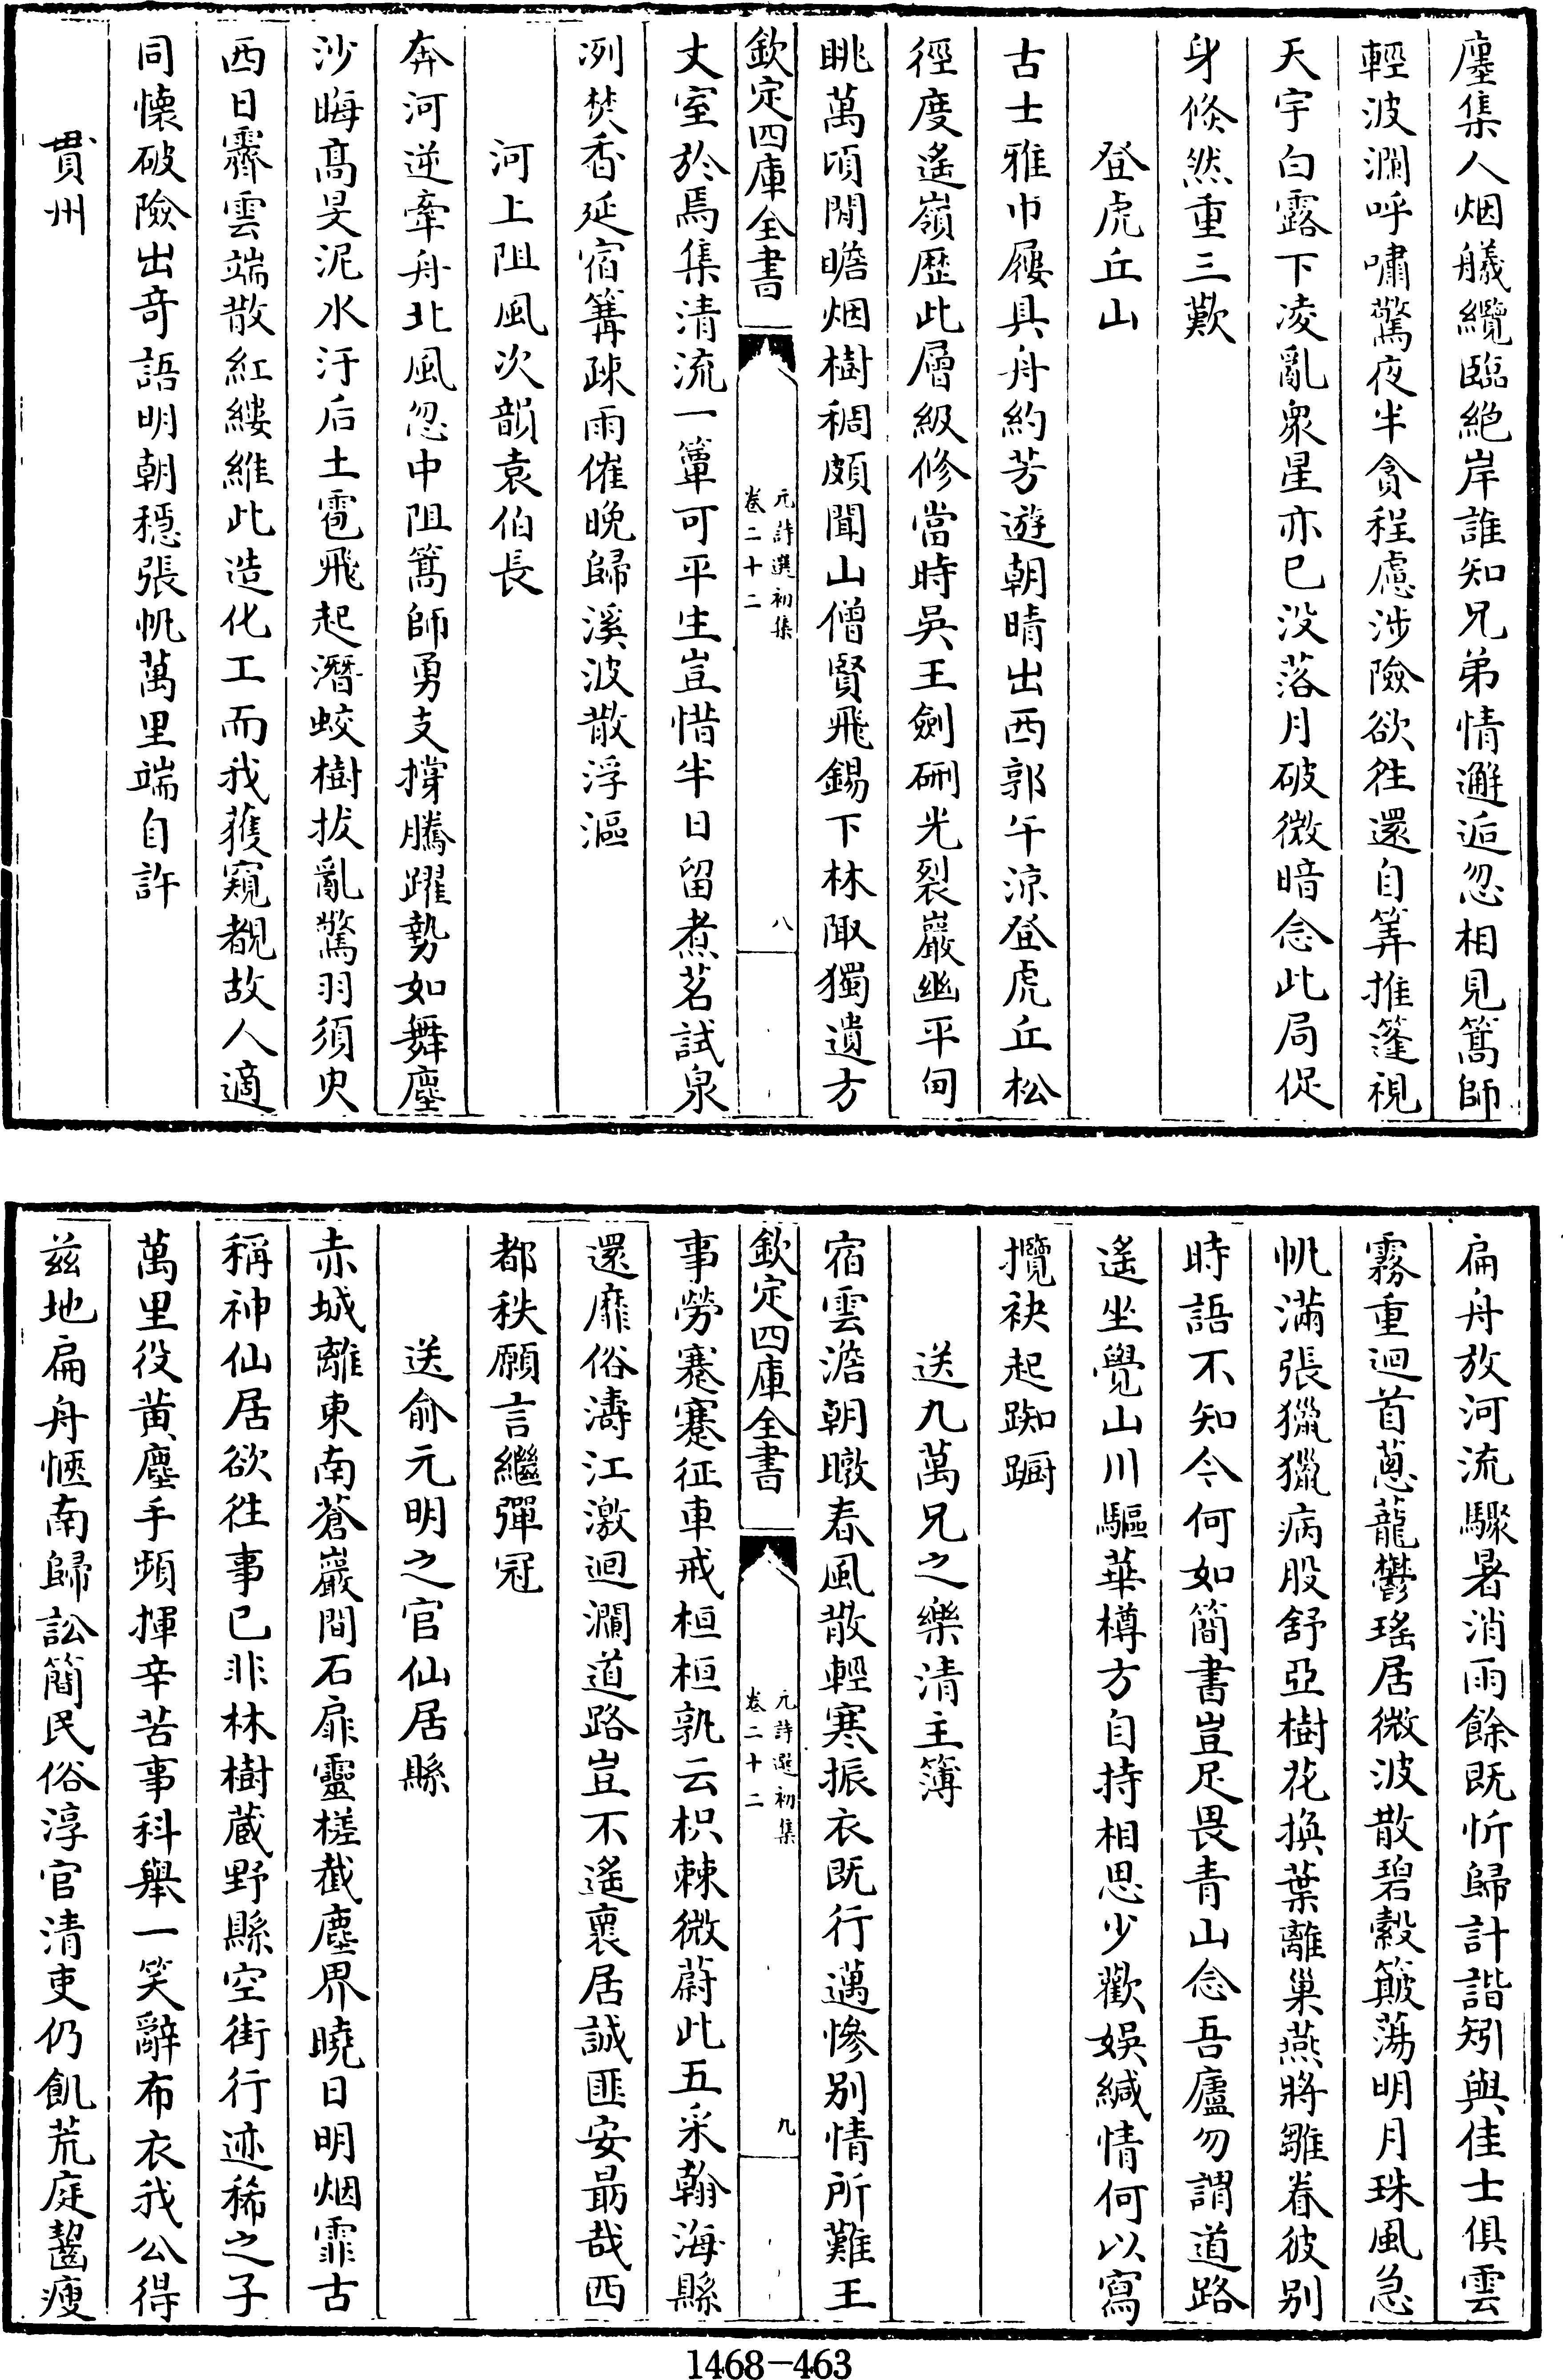 塵集人烟艤纜臨絶岸誰知兄弟情邂逅忽相見篙師
輕波瀾呼嘯驚夜半貪程慮涉險欲往還自筭推篷視
天宇白露下凌亂衆星亦已没落月破微暗念此局促
身倐然重三歎
登虎丘山
古士雅巾屨具舟約芳遊朝晴出西郭午涼登虎丘松
徑度遙嶺歴此層級修當時吳王劍硎光裂巖幽平甸
眺萬頃閒瞻烟樹稠頗聞山僧賢飛錫下林陬獨遺方
欽定四庫全書
元詩選初集
卷二十二
八
丈室於焉集清流一簞可平生豈惜半日留煮茗試泉
冽焚香延宿篝疎雨催晚歸溪波散浮漚
河上阻風次韻袁伯長
奔河逆牽舟北風忽中阻篙師勇支撐騰躍勢如舞塵
沙晦髙旻泥水汙后土雹飛起潛蛟樹拔亂驚羽須臾
西日霽雲端散紅縷維此造化工而我獲窺覩故人適
同懷破險出竒語明朝穩張帆萬里端自許
貫州
扁舟放河流驟暑消雨餘既忻歸計諧矧與佳士俱雲
霧重迴首蔥蘢鬱瑤居微波散碧縠簸蕩明月珠風急
帆滿張獵獵病股舒亞樹花換葉離巢燕將雛眷彼别
時語不知今何如簡書豈足畏青山念吾廬勿謂道路
遙坐覺山川驅華樽方自持相思少歡娱緘情何以寫
攬袂起踟蹰
送九萬兄之樂清主簿
宿雲澹朝暾春風散輕寒振衣既行邁慘别情所難王
欽定四庫全書
元詩選初集
卷二十二
九
事勞蹇蹇征車戒桓桓孰云枳棘微蔚此五采翰海縣
還靡俗濤江激迴瀾道路豈不遙裹居誠匪安勗哉西
都秩願言繼彈冠
送俞元明之官仙居縣
赤城離東南蒼巖間石扉靈槎截塵界曉日明烟霏古
稱神仙居欲往事已非林樹蔵野縣空街行迹稀之子
萬里役黄塵手頻揮辛苦事科舉一笑辭布衣我公得
兹地扁舟愜南歸訟簡民俗淳官清吏仍飢荒庭齧瘦
1468－463